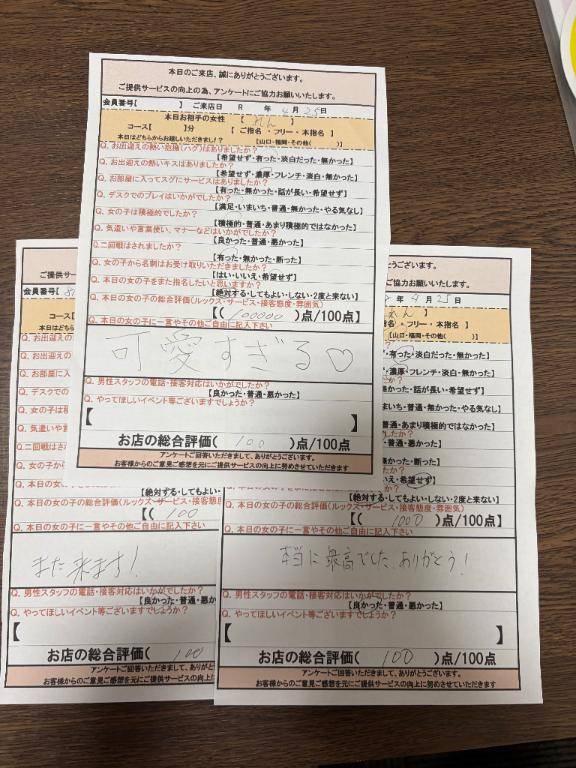 本日のご来店、誠にありがとうございます。
ご提供サービスの向上の為、アンケートにご協力お願いいたします。
会員番号【 】 ご来店日 R 年 4 月 25 日
本日お相手の女性 【 れん 】
コース【 】分 【 ご指名 ・ フリー ・ 本指名 】
本日はどちらからお越しいただきまし!? 【山口・福岡・その他( )】
Q. お出迎えの熱い抱擁(ハグ)はありましたか?
【希望せず・有った・淡白だった・無かった】
Q. お出迎えの熱いキスはありましたか?
【希望せず・濃厚・フレンチ・淡白・無かった】
Q. お部屋に入ってスグにサービスはありましたか?
【有った・無かった・話が長い・希望せず】
Q. デスクでのプレイはいかがでしたか?
【満足・いまいち・普通・無かった・やる気なし】
Q. 女の子は積極的でしたか?
【積極的・普通・あまり積極的ではなかった】
Q. 気遣いや言葉使い、マナーなどはいかがでしたか?
【良かった・普通・悪かった】
Q. 二回戦はされましたか?
【有った・無かった・断った】
Q. 女の子から名刺はお受け取りいただきましたか?
【はい・いいえ・希望せず】
Q. 本日の女の子をまた指名したいと思いますか?
【絶対する・してもよい・しない・2度と来ない】
Q. 本日の女の子の総合評価(ルックス・サービス・接客態度・雰囲気)
【( 100000 )点/100点】
Q. 本日の女の子に一言やその他ご自由に記入下さい
可愛すぎる♡
Q. 男性スタッフの電話・接客対応はいかがでしたか?
【良かった・普通・悪かった】
Q. やってほしいイベント等ございますでしょうか?
【 】
お店の総合評価( 100 )点/100点
アンケートご回答いただきまして、ありがとうございます。
お客様からのご意見ご感想を元にご提供サービスの向上に努めさせていただきます
ご提供サ
会員番号【
コース【
本日は
Q. お出迎えの
Q. お出迎えの
Q. お部屋に入
Q. デスクでの
Q. 女の子は積
Q. 気遣いや言
Q. 二回戦はさ
Q. 女の子から
Q. 本日の女の
【絶対する・してもよい
Q. 本日の女の子の総合評価(ルックス・サービス・接客態度
【( 100
Q. 本日の女の子に一言やその他ご自由に記入下さい
また来ます!
Q. 男性スタッフの電話・接客対応はいかがでしたか?
【良かった・普通・悪か
Q. やってほしいイベント等ございますでしょうか?
【
お店の総合評価( 100
アンケートご回答いただきまして、ありが
お客様からのご意見ご感想を元にご提供サービスの向上に
うございます。
ご協力お願いいたします。
年 4 月 25 日
れん 】
・ フリー ・ 本指名 】
【山口・福岡・その他( )】
・有った・淡白だった・無かった】
・濃厚・フレンチ・淡白・無かった】
・無かった・話が長い・希望せず】
まいち・普通・無かった・やる気なし】
・普通・あまり積極的ではなかった】
・普通・悪かった】
・無かった・断った】
いえ・希望せず】
・してもよい・しない・2度と来ない】
Q. 本日の女の子の総合評価(ルックス・サービス・接客態度・雰囲気)
【( 1000 )点/100点】
Q. 本日の女の子に一言やその他ご自由に記入下さい
本当に最高でした、ありがとう!
Q. 男性スタッフの電話・接客対応はいかがでしたか?
【良かった・普通・悪かった】
Q. やってほしいイベント等ございますでしょうか?
【 】
お店の総合評価( 100 )点/100点
アンケートご回答いただきまして、ありがとうございます。
お客様からのご意見ご感想を元にご提供サービスの向上に努めさせていただきます